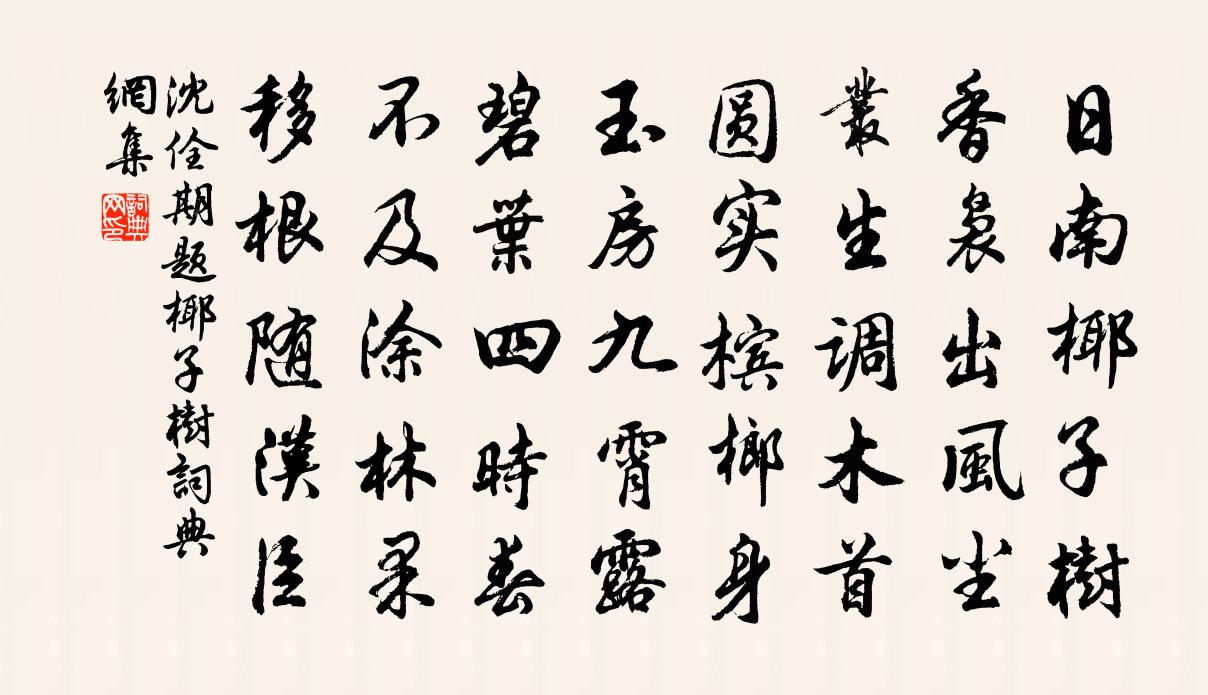 日南椰子樹
香裊出風尘
叢生调木首
圆实槟榔身
玉房九霄露
碧葉四時春
不及涂林果
移根随漢臣
沈佺期题椰子樹詞典
網集
詞典
网印